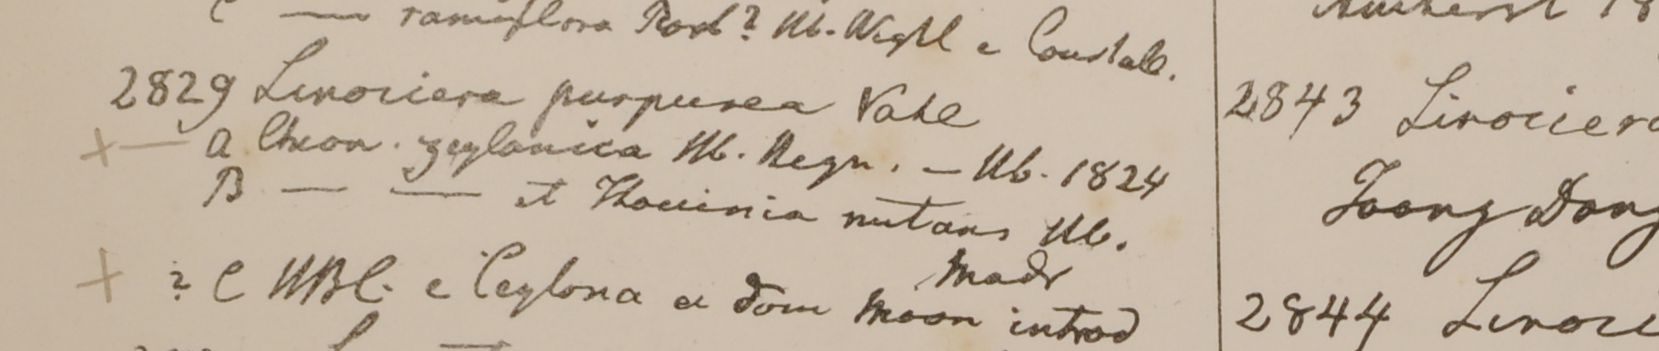 C — ramiflora Roxb? Hb. Wight e Courtall.
2829 Linociera purpurea Vahl
+ — A Chion. zeylanica Hb. Heyn. — Hb. 1824
B — — et Thouinia nutans Hb.
Madr
+ ? C HBC. e Ceylona a dom Moon introd
Amherst 18
2843 Linociera
Toong Dong
2844 Linoci